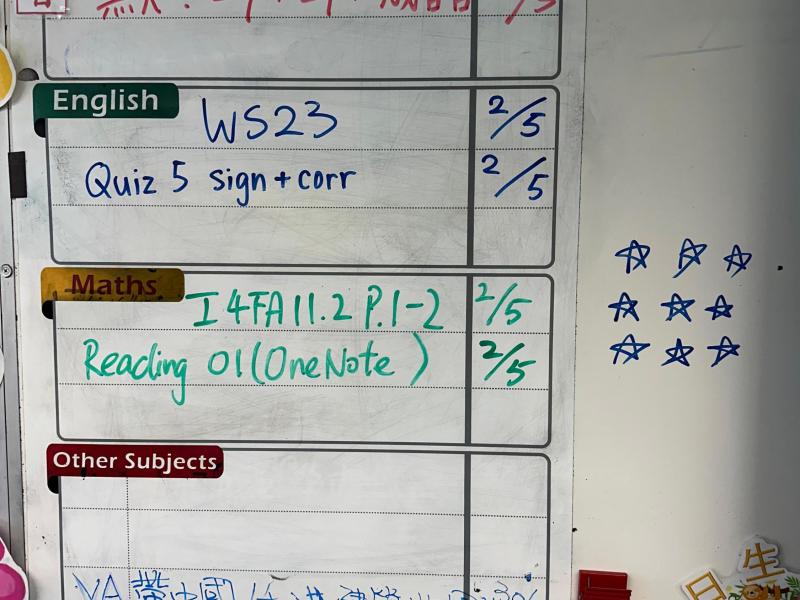 English
WS23 2/5
Quiz 5 sign + corr 2/5
Maths
I4FA11.2 P.1-2 2/5
Reading 01(OneNote) 2/5
Other Subjects
VA 帶中國
生
日